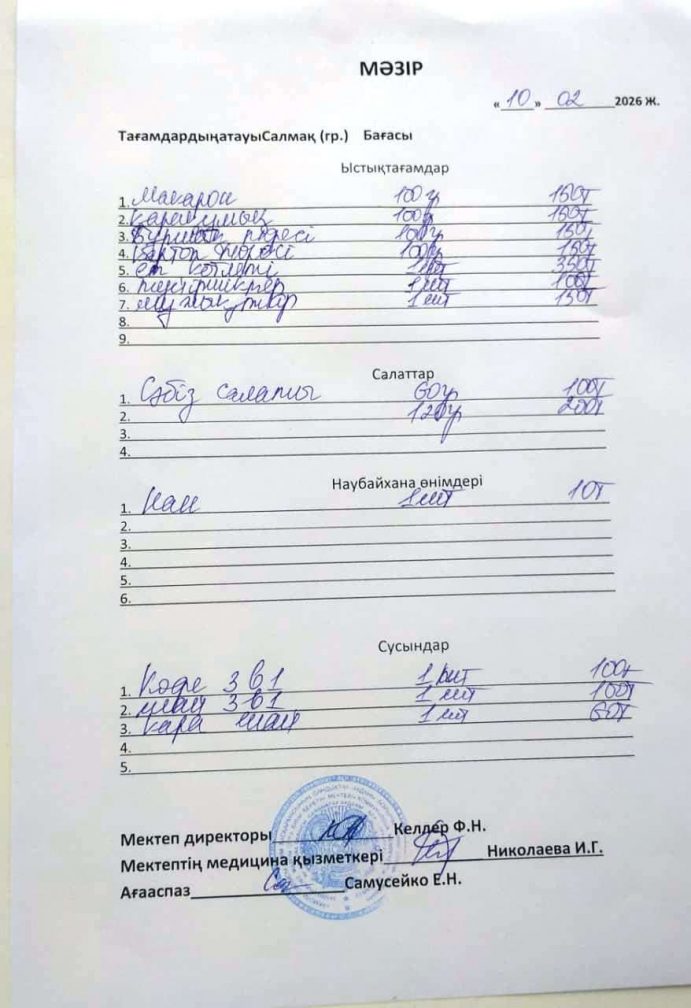 МӘЗІР
« 10 » 02 2026 Ж.
ТағамдардыңатауыСалмақ (гр.) Бағасы
Ыстықтағамдар
1. Макарон 100гр 150т
2. Каракумық 100гр 150т
3. Бұршақ пюресі 100гр 150т
4. Картоп пюресі 100гр 150т
5. ет котлеті 1шт 350т
6. 1шт 100т
7. 1шт 150т
8.
9.
Салаттар
1. Сәбіз салаты 60гр 100т
2. 120гр 200т
3.
4.
Наубайхана өнімдері
1. Нан 1шт 10т
2.
3.
4.
5.
6.
Сусындар
1. Кофе 3 в 1 1 шт 100т
2. шай 3 в 1 1 шт 100т
3. кара шай 1 шт 60т
4.
5.
Мектеп директоры Келлер Ф.Н.
Мектептің медицина қызметкері Николаева И.Г.
Ағааспаз Самусейко Е.Н.